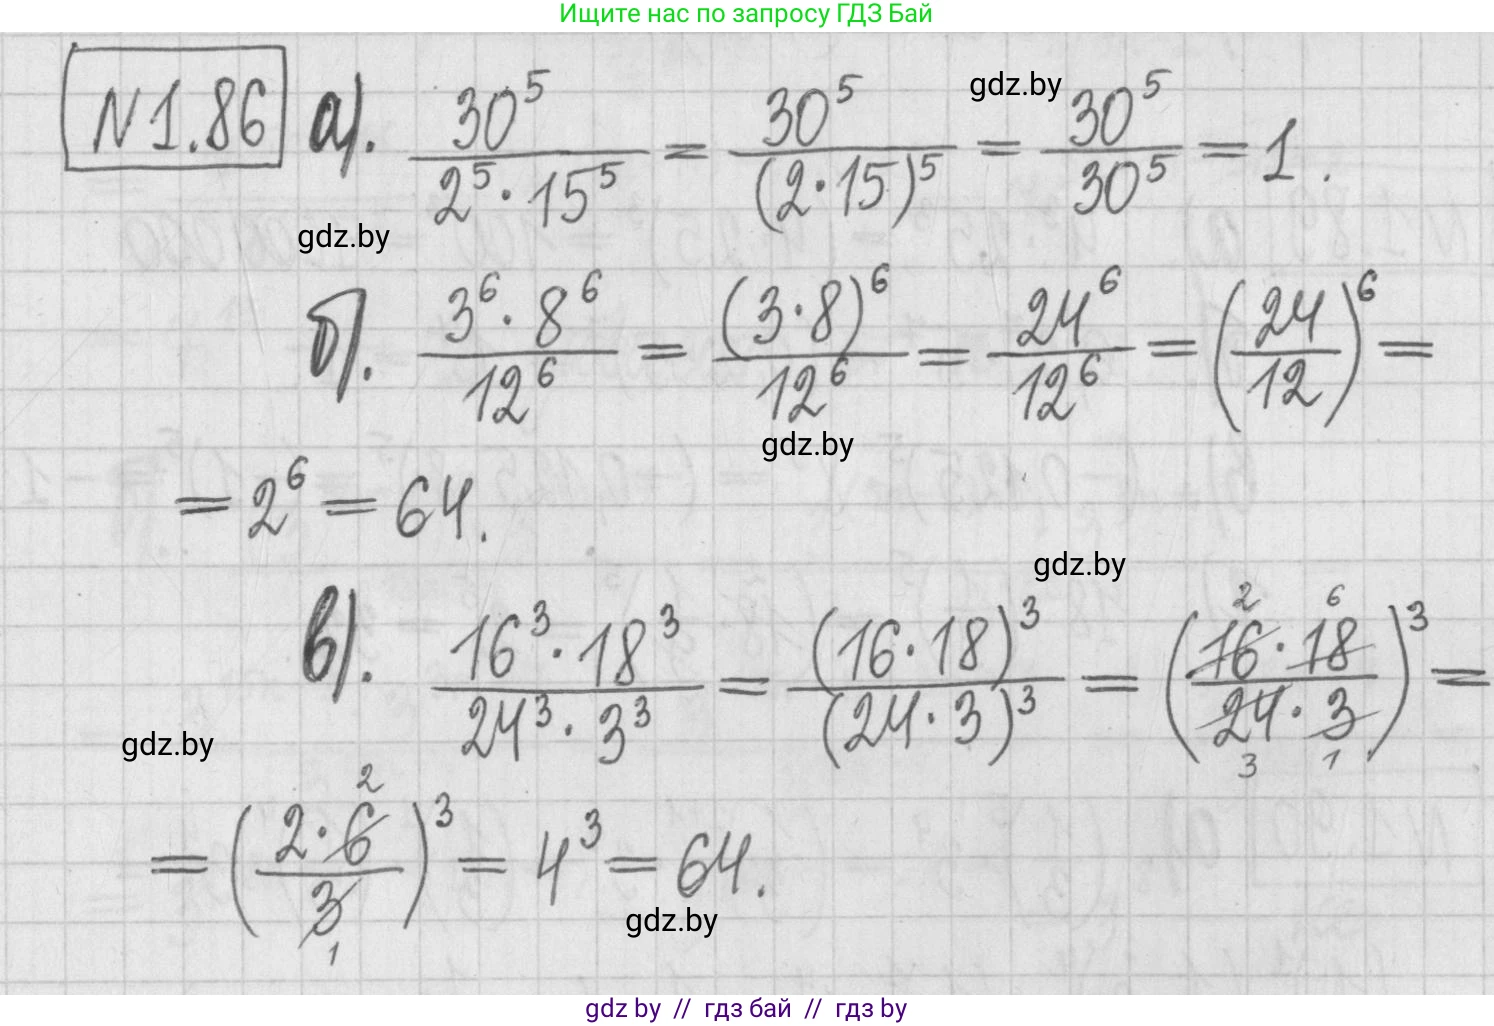 Ищите нас по запросу ГДЗ Бай
N1.86 а). 30^5 / (2^5 · 15^5) = 30^5 / (2·15)^5 = 30^5 / 30^5 = 1.
gdz.by
gdz.by
б). (3^6 · 8^6) / 12^6 = (3·8)^6 / 12^6 = 24^6 / 12^6 = (24/12)^6 =
gdz.by
= 2^6 = 64.
gdz.by
в). (16^3 · 18^3) / (24^3 · 3^3) = (16·18)^3 / (24·3)^3 = ((16 · 18) / (24 · 3))^3 =
2 6
3 1
gdz.by
= ((2·6) / 3)^3 = 4^3 = 64.
2
1
gdz.by
gdz.by // гдз бай // гдз by